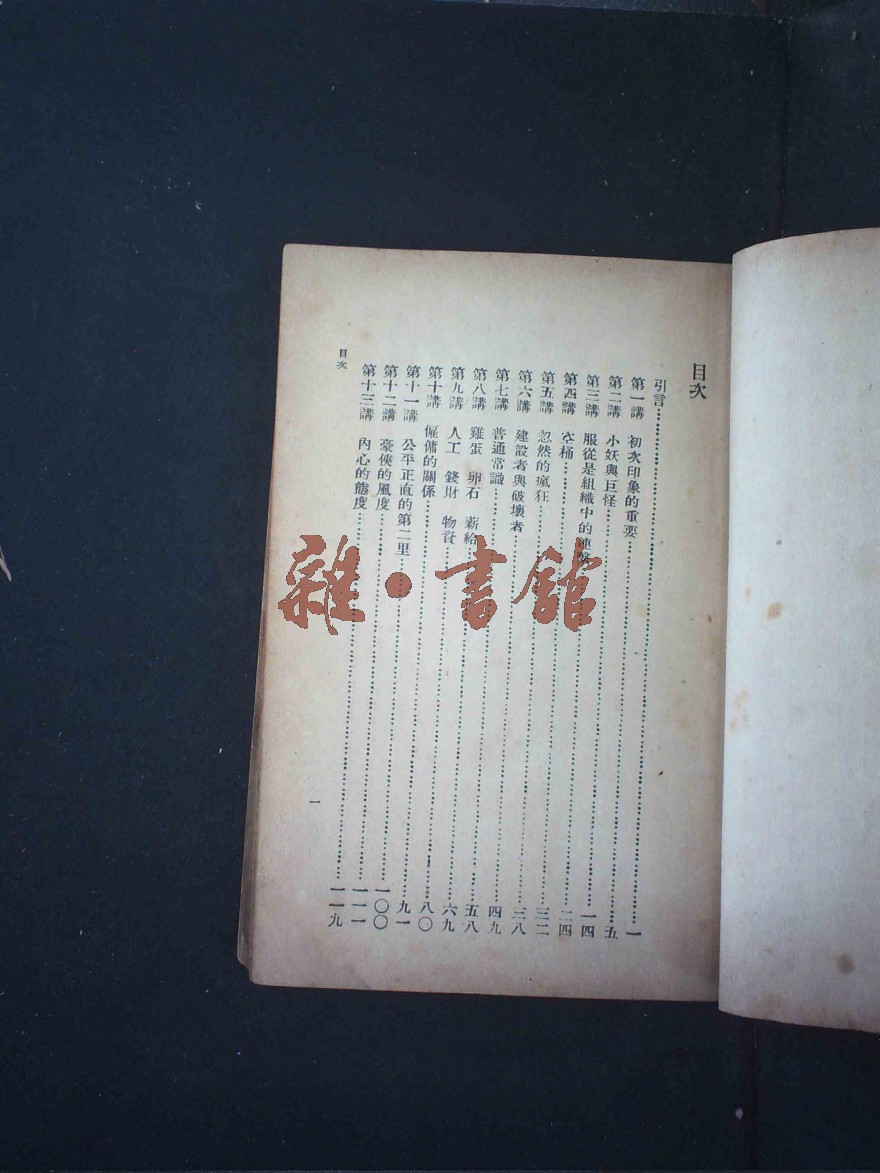 目次
引言……一
第一講 初次印象的重要……五
第二講 小妖與巨怪……一四
第三講 服從是組織中的……二四
第四講 空桶……三二
第五講 忽然的瘋狂……三八
第六講 建設者與破壞者……四九
第七講 普通常識……五八
第八講 雞蛋 卵石 薪給……六九
第九講 人工 錢財 物資……八〇
第十講 僱傭的關係……九一
第十一講 公平正直的第二里……一〇〇
第十二講 豪俠的風度……一一一
第十三講 內心的態度……一一九
目次
一
雜·書館